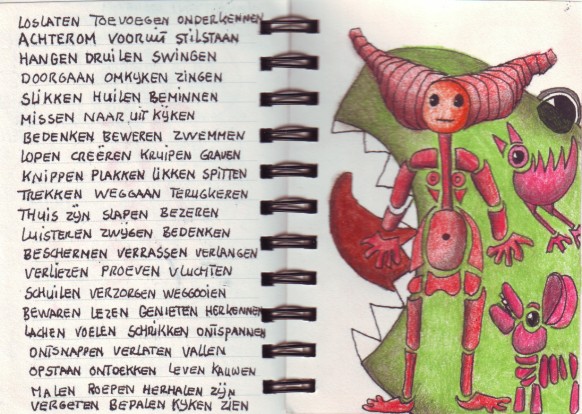 LOSLATEN TOEVOEGEN ONDERKENNEN
ACHTEROM VOORUIT STILSTAAN
HANGEN DRUILEN SWINGEN
DOORGAAN OMKIJKEN ZINGEN
SLIKKEN HUILEN BEMINNEN
MISSEN NAAR UIT KIJKEN
BEDENKEN BEWEREN ZWEMMEN
LOPEN CREËREN KRUIPEN GRAVEN
KNIPPEN PLAKKEN LIKKEN SPITTEN
TREKKEN WEGGAAN TERUGKEREN
THUIS ZIJN SLAPEN BEZEREN
LUISTEREN ZWIJGEN BEDENKEN
BESCHERMEN VERRASSEN VERLANGEN
VERLIEZEN PROEVEN VLUCHTEN
SCHUILEN VERZORGEN WEGGOOIEN
BEWAREN LEZEN GENIETEN HERKENNEN
LACHEN VOELEN SCHRIKKEN ONTSPANNEN
ONTSNAPPEN VERLATEN VALLEN
OPSTAAN ONTDEKKEN LEVEN KAUWEN
MALEN ROEPEN HERHALEN ZIJN
VERGETEN BEPALEN KIJKEN ZIEN